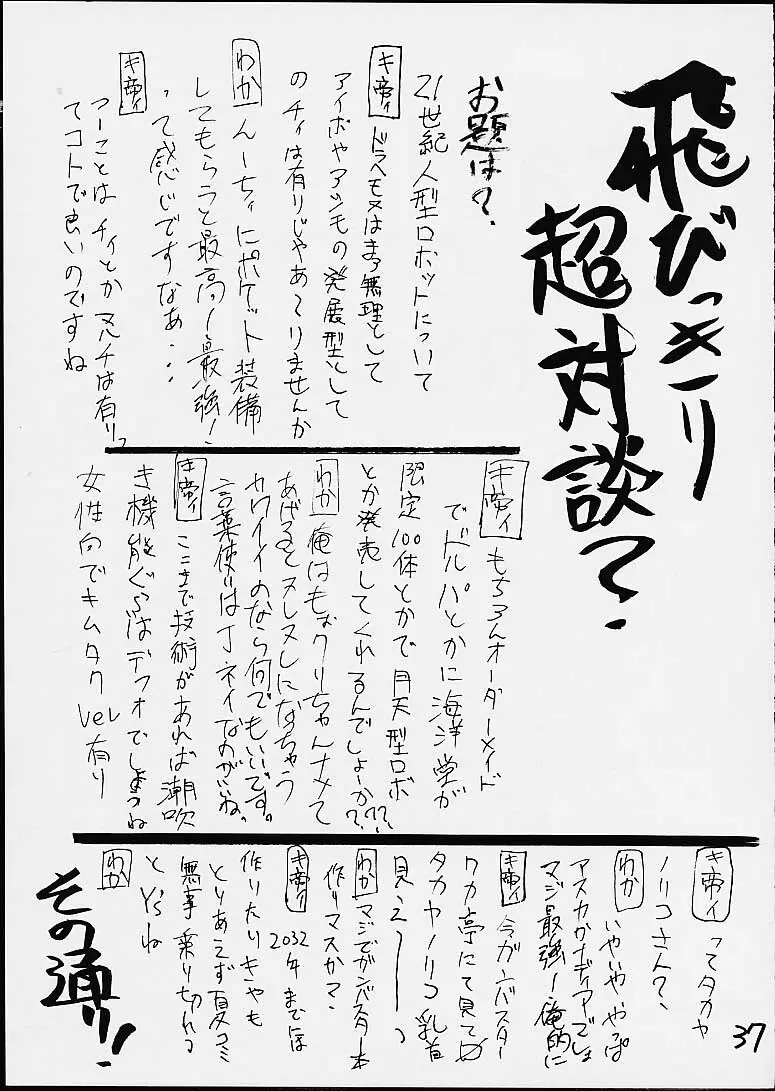 飛びっきり
超対談？.
お題は？.
21世紀人型ロボットについて
キ帝ィ ドラヘモヌはまず無理として
アイボやアシモの発展型として
のチィは有りじゃあ〜りませんか
わか んーちぃにポケット装備
してもらうと最高ー！最強！
って感じですなぁ・・・
キ帝ィ
つーことは チィとかマルチは有りっ
てコトで良いのですね
キ帝ィ もちろんオーダーメイド
でドルパとかに海洋堂が
限定100体とかで月天型ロボ
とか発売してくれるんでしょーか？？？
わか 俺はもぉクリちゃんナメて
あげるとヌレヌレになっちゃう
カワイイのなら何でもいいです。
言葉使いは丁ネイなのがいいね。
キ帝ィ ここまで技術があれば潮吹
き機能ぐらいはデフォでしょうね
女性向でキムタクver有り
キ帝ィ ってタカヤ
ノリコさん？、
わか いやいややっぱ
アスカかナディアでしょ
マジ最強！俺的に
キ帝ィ 今ガンバスター
ワカ亭にて見てゆ
タカヤノリコ乳首
見えーっ
わか マジでガンバスター本
作りマスか？
キ帝ィ 2032年までには
作りたりきやも
とりあえず夏コミ
無事乗り切れる
とY'sね
わか
その通り！
37